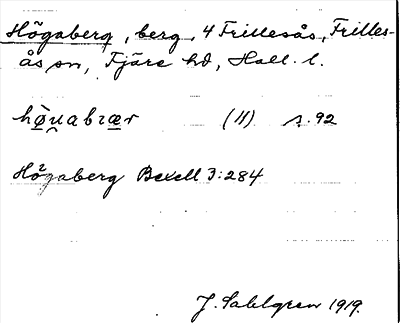 Högaberg, berg, 4 Frillesås, Frilles-
ås sn, Fjäre hd, Hall. l.
hø̀u̯abrær (11) s. 92
Högaberg Bexell 3:284
J. Sahlgren 1919.